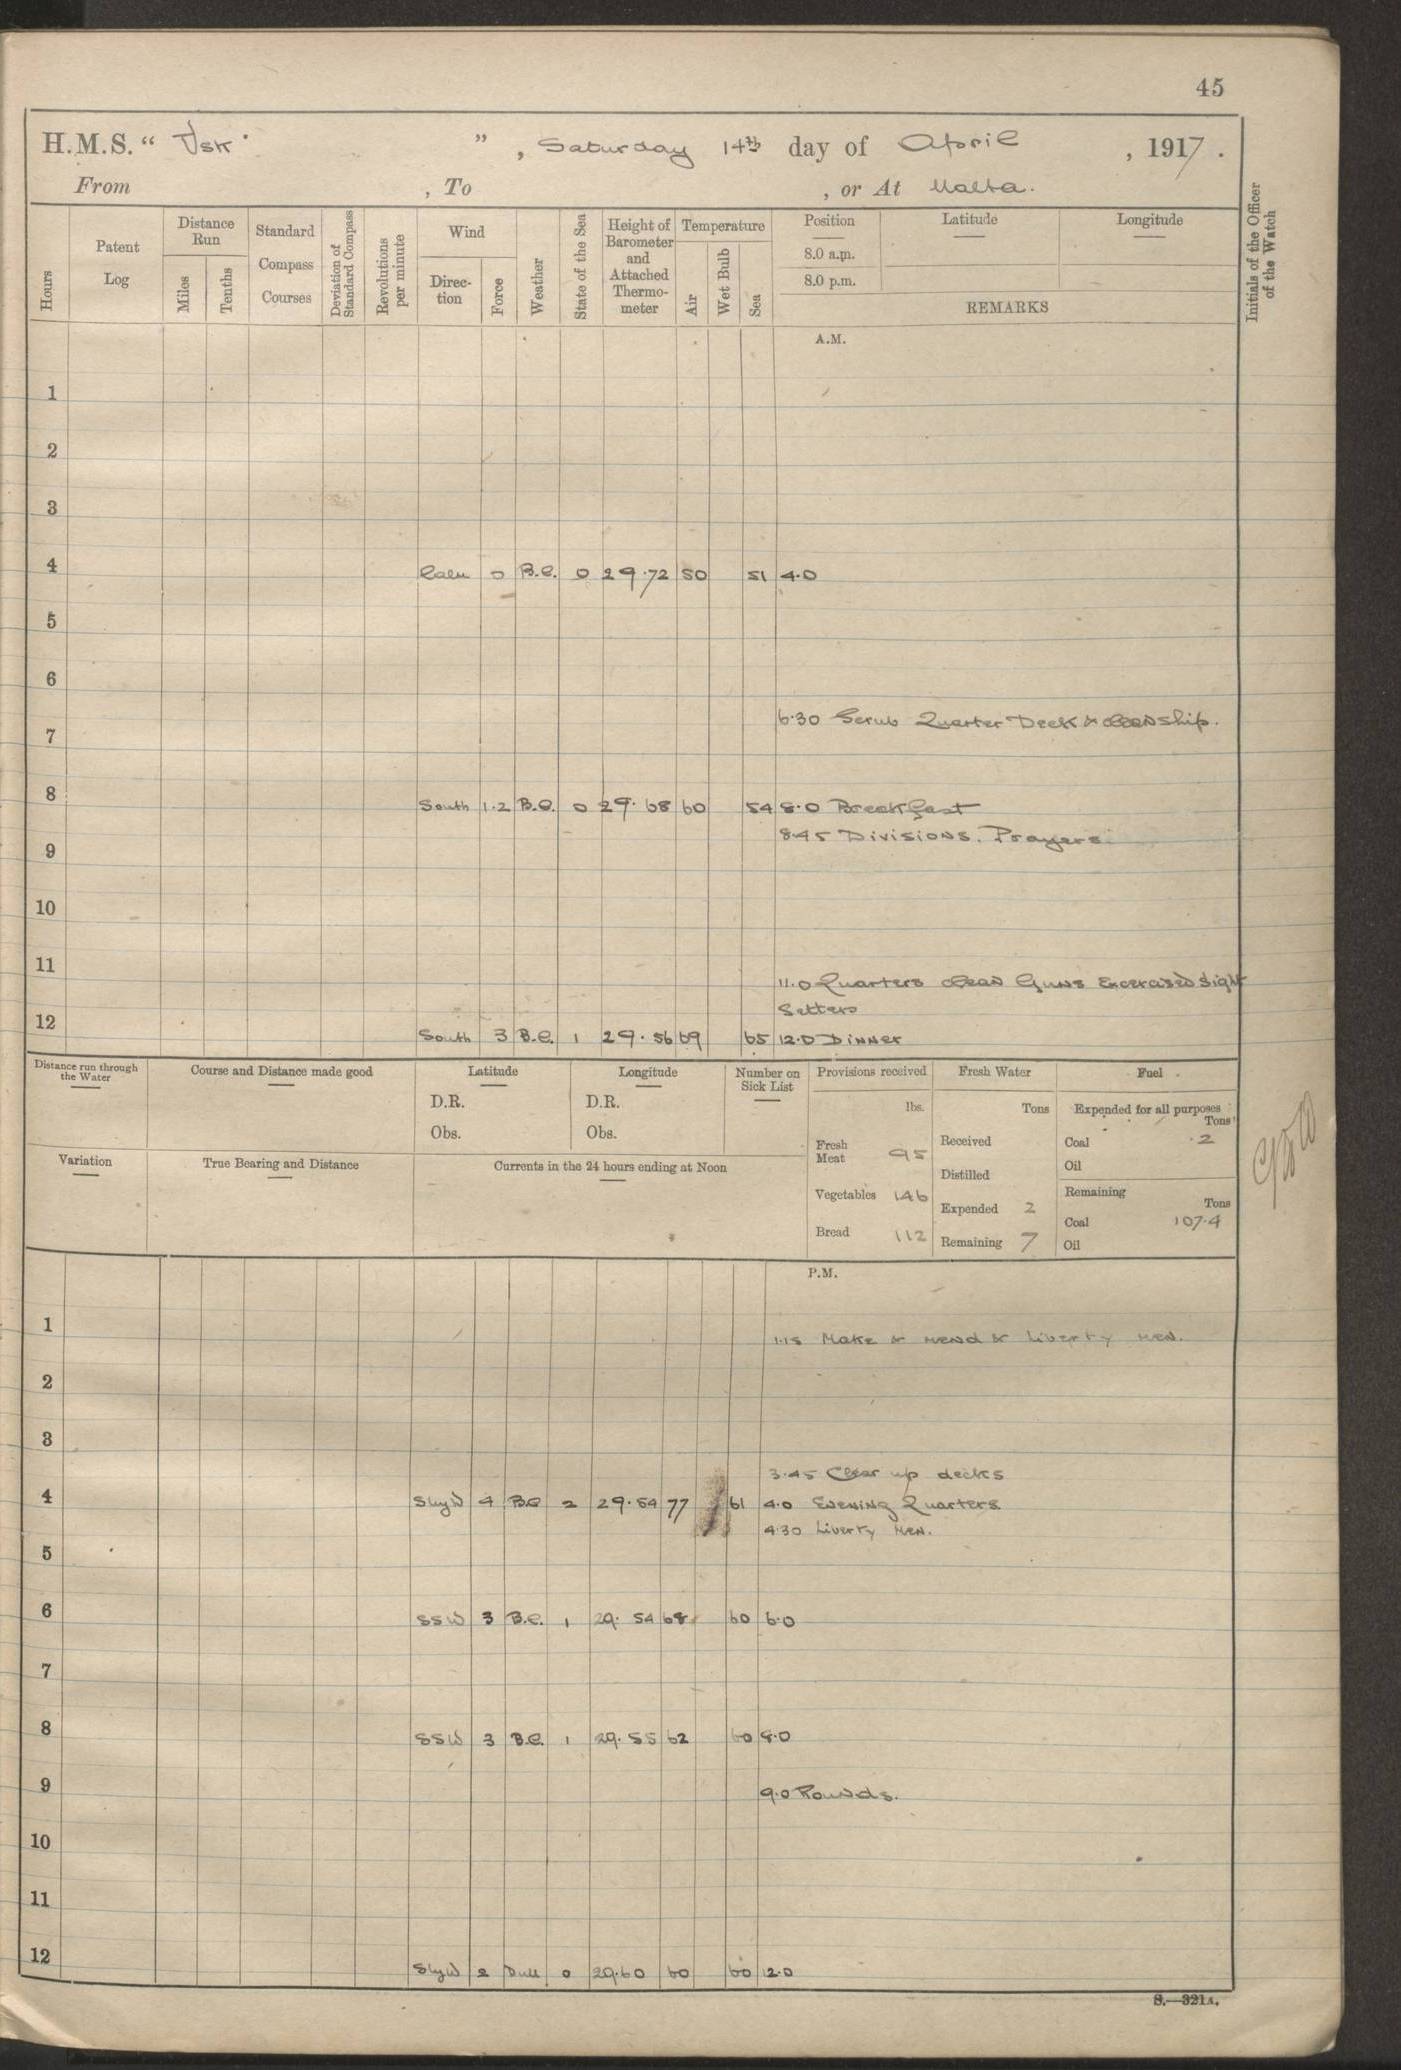 45
H.M.S. “ Usk ” , Saturday 14th day of April , 1917 .
From , To , or At Malta.
Hours
Patent Log
Distance Run
Miles
Tenths
Standard Compass Courses
Deviation of Standard Compass
Revolutions per minute
Wind
Direction
Force
Weather
State of the Sea
Height of Barometer and Attached Thermometer
Temperature
Air
Wet Bulb
Sea
Position
8.0 a.m.
8.0 p.m.
Latitude
Longitude
REMARKS
Initials of the Officer of the Watch
A.M.
1
2
3
4 Calm 0 B.C. 0 29.72 50 51 4.0
5
6
6.30 Scrub Quarter Deck & clean ship.
7
8 South 1.2 B.C. 0 29.68 60 54 8.0 Breakfast
8.45 Divisions. Prayers.
9
10
11
11.0 Quarters clean Guns Excercised Sight
Setters
12 South 3 B.C. 1 29.56 69 65 12.0 Dinner
Distance run through the Water
Course and Distance made good
Latitude
D.R.
Obs.
Longitude
D.R.
Obs.
Number on Sick List
Provisions received
lbs.
Fresh Meat 95
Vegetables 146
Bread 112
Fresh Water
Tons
Received
Distilled
Expended 2
Remaining 7
Fuel
Expended for all purposes
Tons
Coal .2
Oil
Remaining
Tons
Coal 107.4
Oil
Variation
True Bearing and Distance
Currents in the 24 hours ending at Noon
P.M.
1 1.15 Make & mend & Liberty men.
2
3
3.45 Clear up decks
4 SbyW 4 B.C 2 29.54 77 61 4.0 Evening Quarters
4.30 Liberty Men.
5
6 SSW 3 B.C. 1 29.54 68 60 6.0
7
8 SSW 3 B.C. 1 29.55 62 60 8.0
9 9.0 Rounds.
10
11
12 SbyW 2 Dull 0 29.60 60 60 12.0
S.—321A.